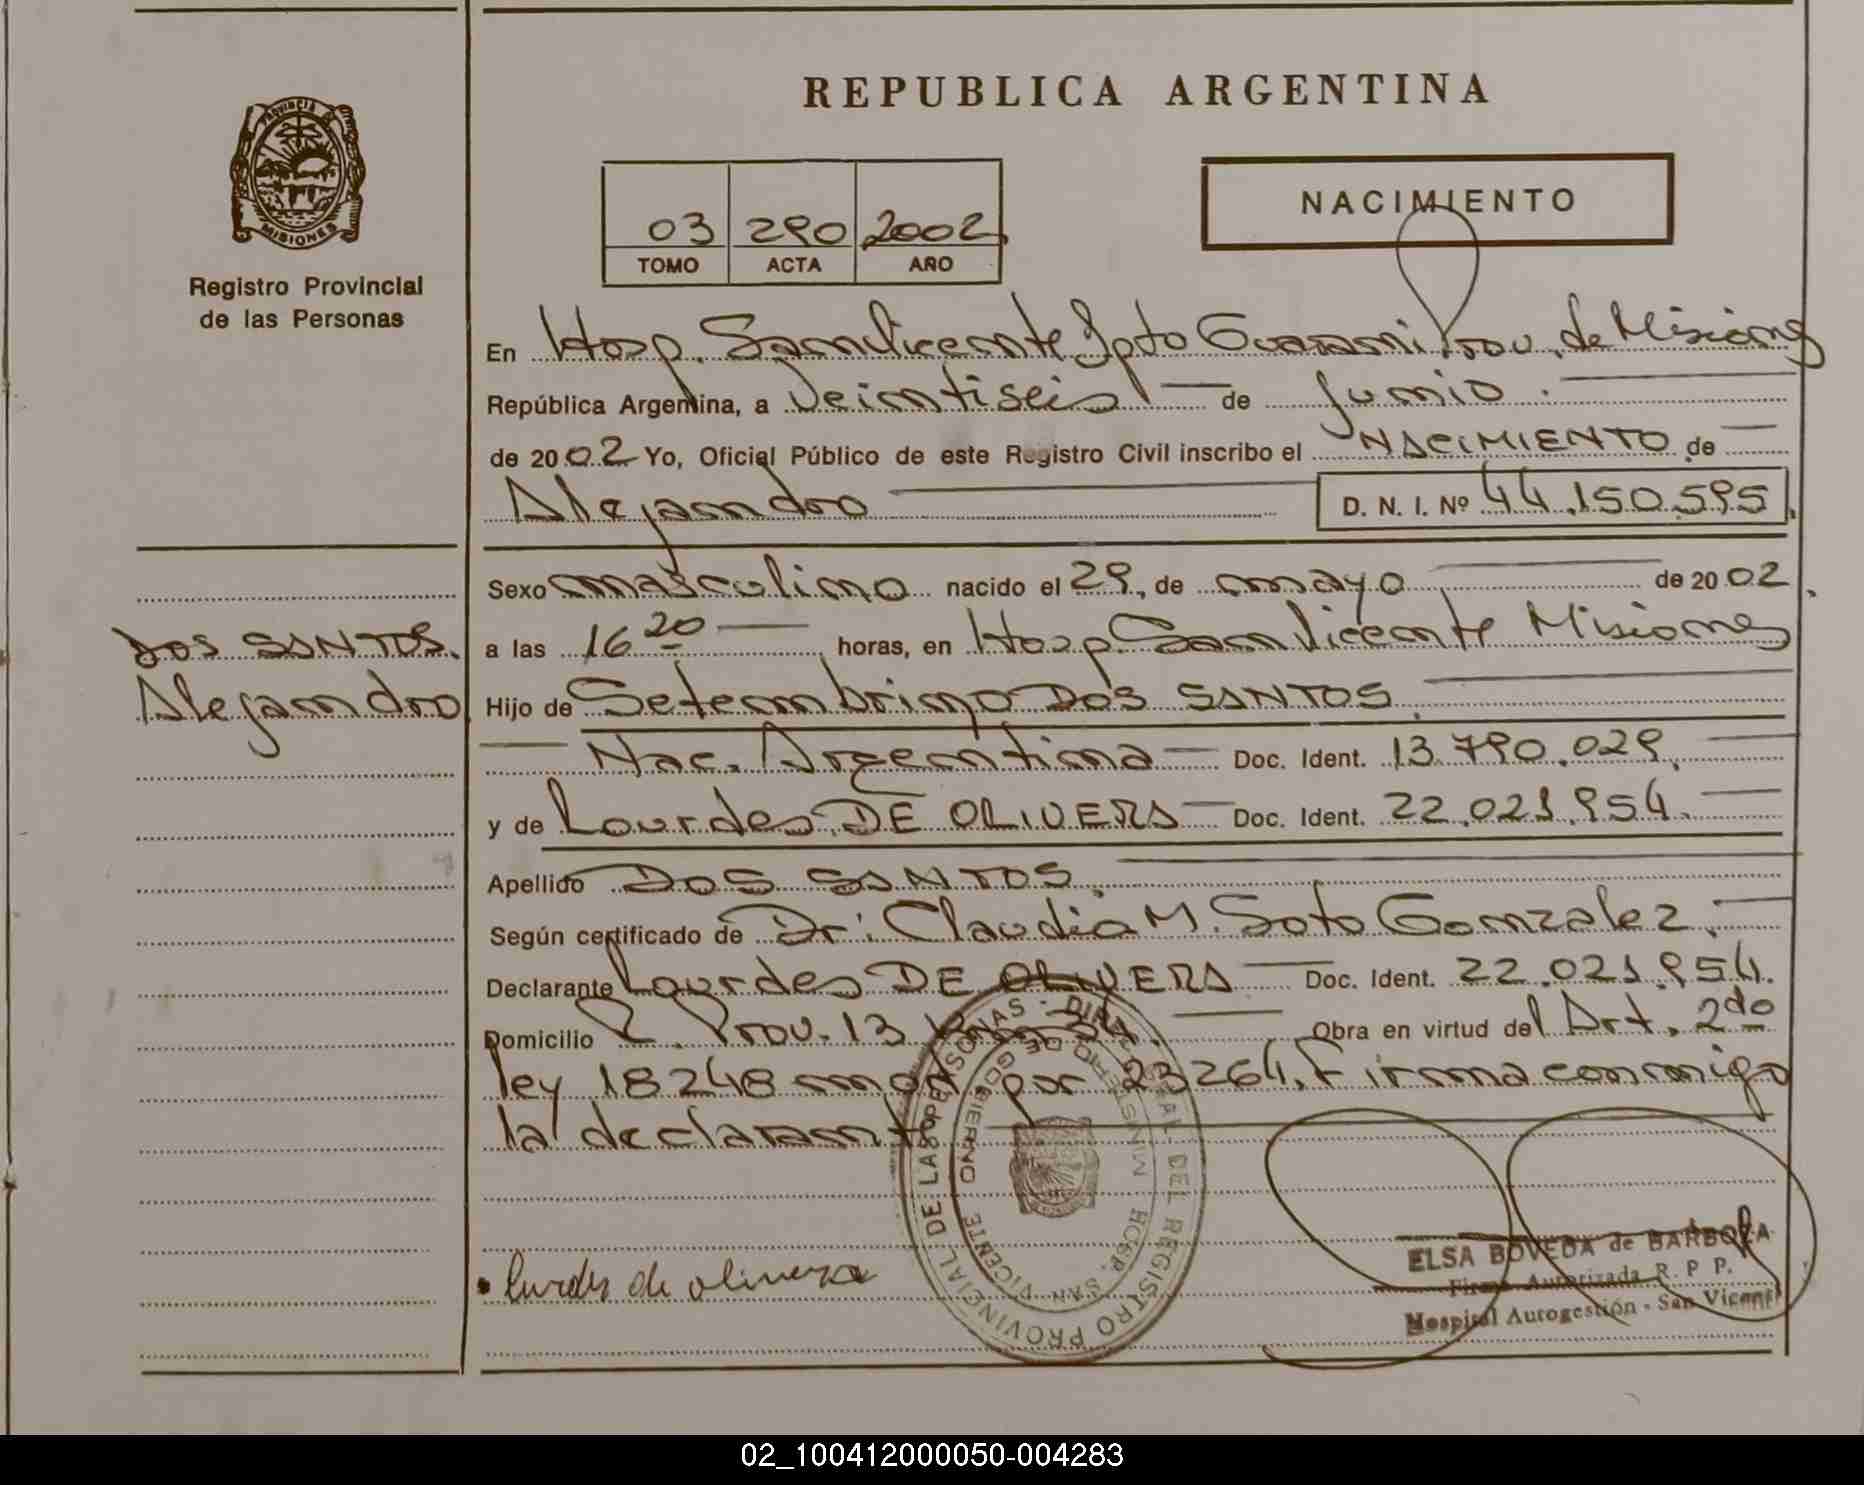 REPUBLICA ARGENTINA
PROVINCIA DE
MISIONES
Registro Provincial
de las Personas
03 290 2002
TOMO ACTA AÑO
NACIMIENTO
En Hosp. San Vicente Dpto Guarani Prov. de Misiones
República Argentina, a Veintiseis de Junio.
de 2002 Yo, Oficial Público de este Registro Civil inscribo el NACIMIENTO de
Alejandro D. N. I. Nº 44.150.595
Sexo masculino nacido el 29, de mayo de 2002
a las 16 20 horas, en Hosp. San Vicente Misiones
DOS SANTOS.
Alejandro
Hijo de Setembrino DOS SANTOS.
Nac. Argentina Doc. Ident. 13.790.029.
y de Lourdes DE OLIVERA Doc. Ident. 22.021.954.
Apellido DOS SANTOS.
Según certificado de Dr: Claudia M. Soto Gonzalez.
Declarante Lourdes DE OLIVERA Doc. Ident. 22.021.954.
Domicilio R. Prov. 13 Obra en virtud del Art. 2do
ley 18248 mod. por 23264. Firma conmigo
la declarante
DIR. GRAL. DEL REGISTRO PROVINCIAL DE LAS PERSONAS -
MINISTERIO DE GOBIERNO
HOSP. SAN VICENTE
lurdes de olivera
ELSA BOVEDA de BARBOZA
Firma Autorizada R. P. P.
Hospital Autogestión - San Vicente
02_100412000050-004283